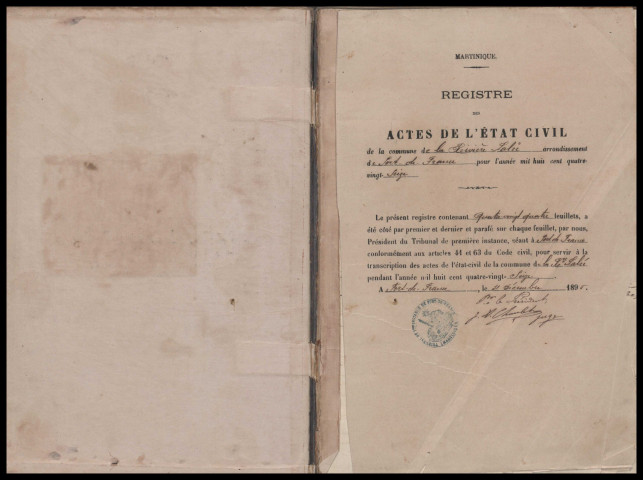 MARTINIQUE.
REGISTRE
DES
ACTES DE L'ÉTAT CIVIL
de la commune de la Rivière Salée arrondissement
de Fort de France pour l'année mil huit cent quatre-
vingt-seize
Le présent registre contenant quatre vingt quatre feuillets, a
été coté par premier et dernier et parafé sur chaque feuillet, par nous,
Président du Tribunal de première instance, séant à Fort de France
conformément aux articles 41 et 63 du Code civil, pour servir à la
transcription des actes de l'état-civil de la commune de la Rre Salée
pendant l'année mil huit cent quatre-vingt-seize
A Fort-de-France, le Décembre 1895.
Pr le Président
juge